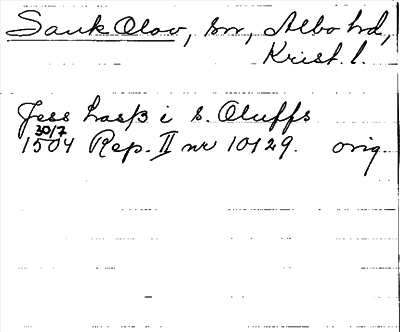 Sankt Olov, sn, Albo hd,
Krist. l.
Jess Lasß i S. Oluffs
30/7
1504 Rep. II nr 10129. orig.